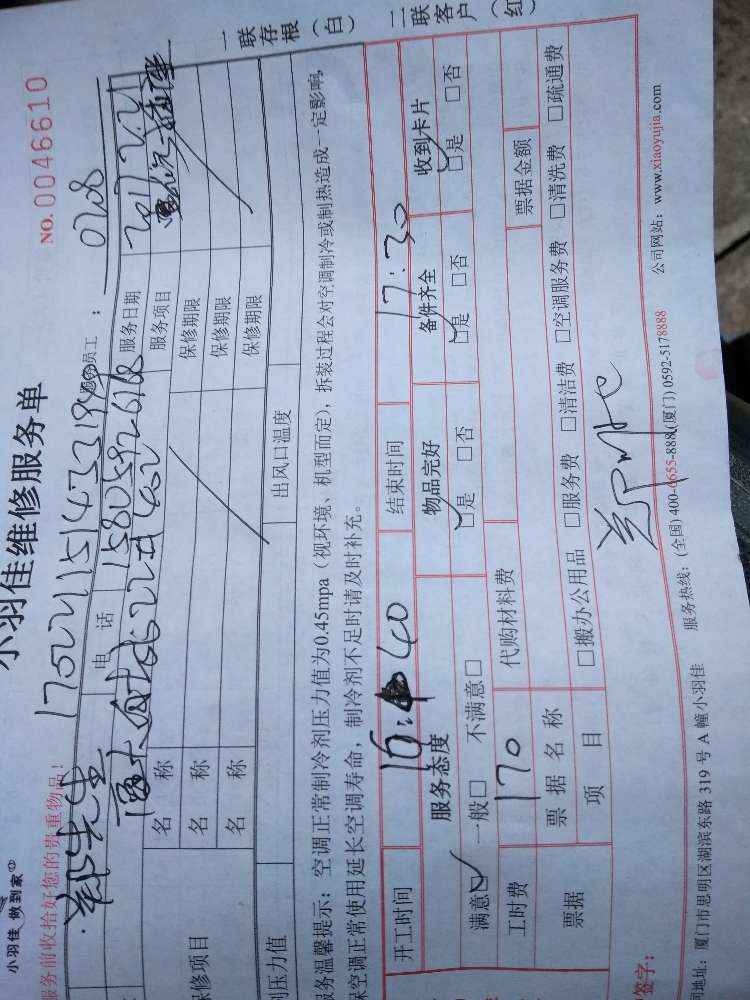 小羽佳 做到家
小羽佳维修服务单
NO. 0046610
服务前收拾好您的贵重物品!
服务员工 : 0708
郑先生
电 话 15805926168
服务日期 2017.2.21
服务项目
名 称
保修期限
名 称
保修期限
名 称
保修期限
保修项目
压力值
出风口温度
一联存根(白)
二联客户(红)
服务温馨提示:空调正常制冷剂压力值为0.45mpa(视环境、机型而定),拆装过程会对空调制冷或制热造成一定影响,
保空调正常使用延长空调寿命,制冷剂不足时请及时补充。
开工时间 16:40 结束时间 17:30
服务态度 物品完好 备件齐全 收到卡片
满意☑ 一般□ 不满意□ ☑是 □否 ☑是 □否 ☑是 □否
工时费 170 代购材料费 票据金额
票据 票据名称
项 目 □搬办公用品 □服务费 □清洁费 □空调服务费 □清洗费 □疏通费
签字:
地址:厦门市思明区湖滨东路 319 号 A 幢小羽佳 服务热线:(全国) 400-6655-888 (厦门) 0592-5178888 公司网站:www.xiaoyujia.com